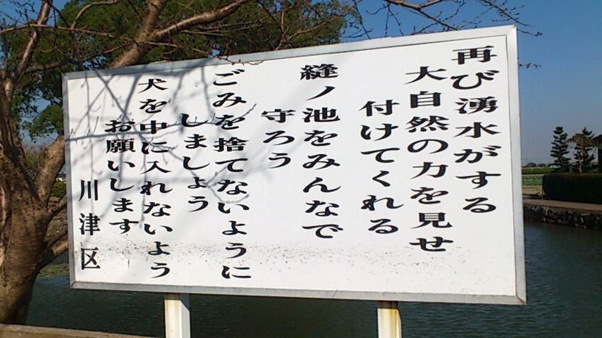 再び湧水がする
大自然の力を見せ
付けてくれる
縫ノ池をみんなで
守ろう
ごみを捨てないように
しましょう
犬を中に入れないよう
お願いします
川津区